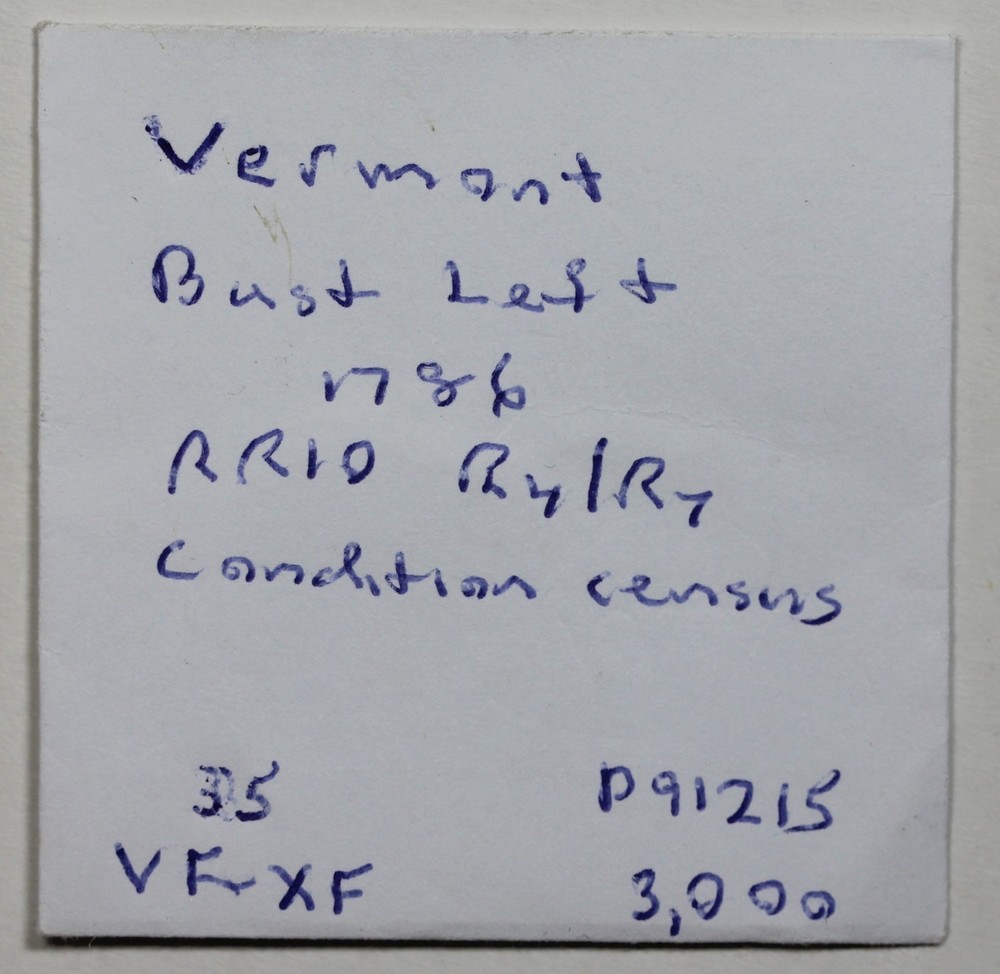 Vermont
Bust Left
1786
RR10 Ry/Ry
Condition census
35 P91215
VF-XF 3,000